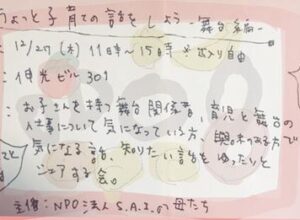 ちょっと子育ての話をしよう -舞台編-
: 12/27 (木) 11時〜15時 ※出入り自由
: 伸光ビル 301
: お子さんを持つ舞台関係者、育児と舞台の
仕事について気になっている方、興味のある方で
気になる話、知りたい話をゆったりと
シェアする会。
主催: NPO法人 S.A.I.の母たち